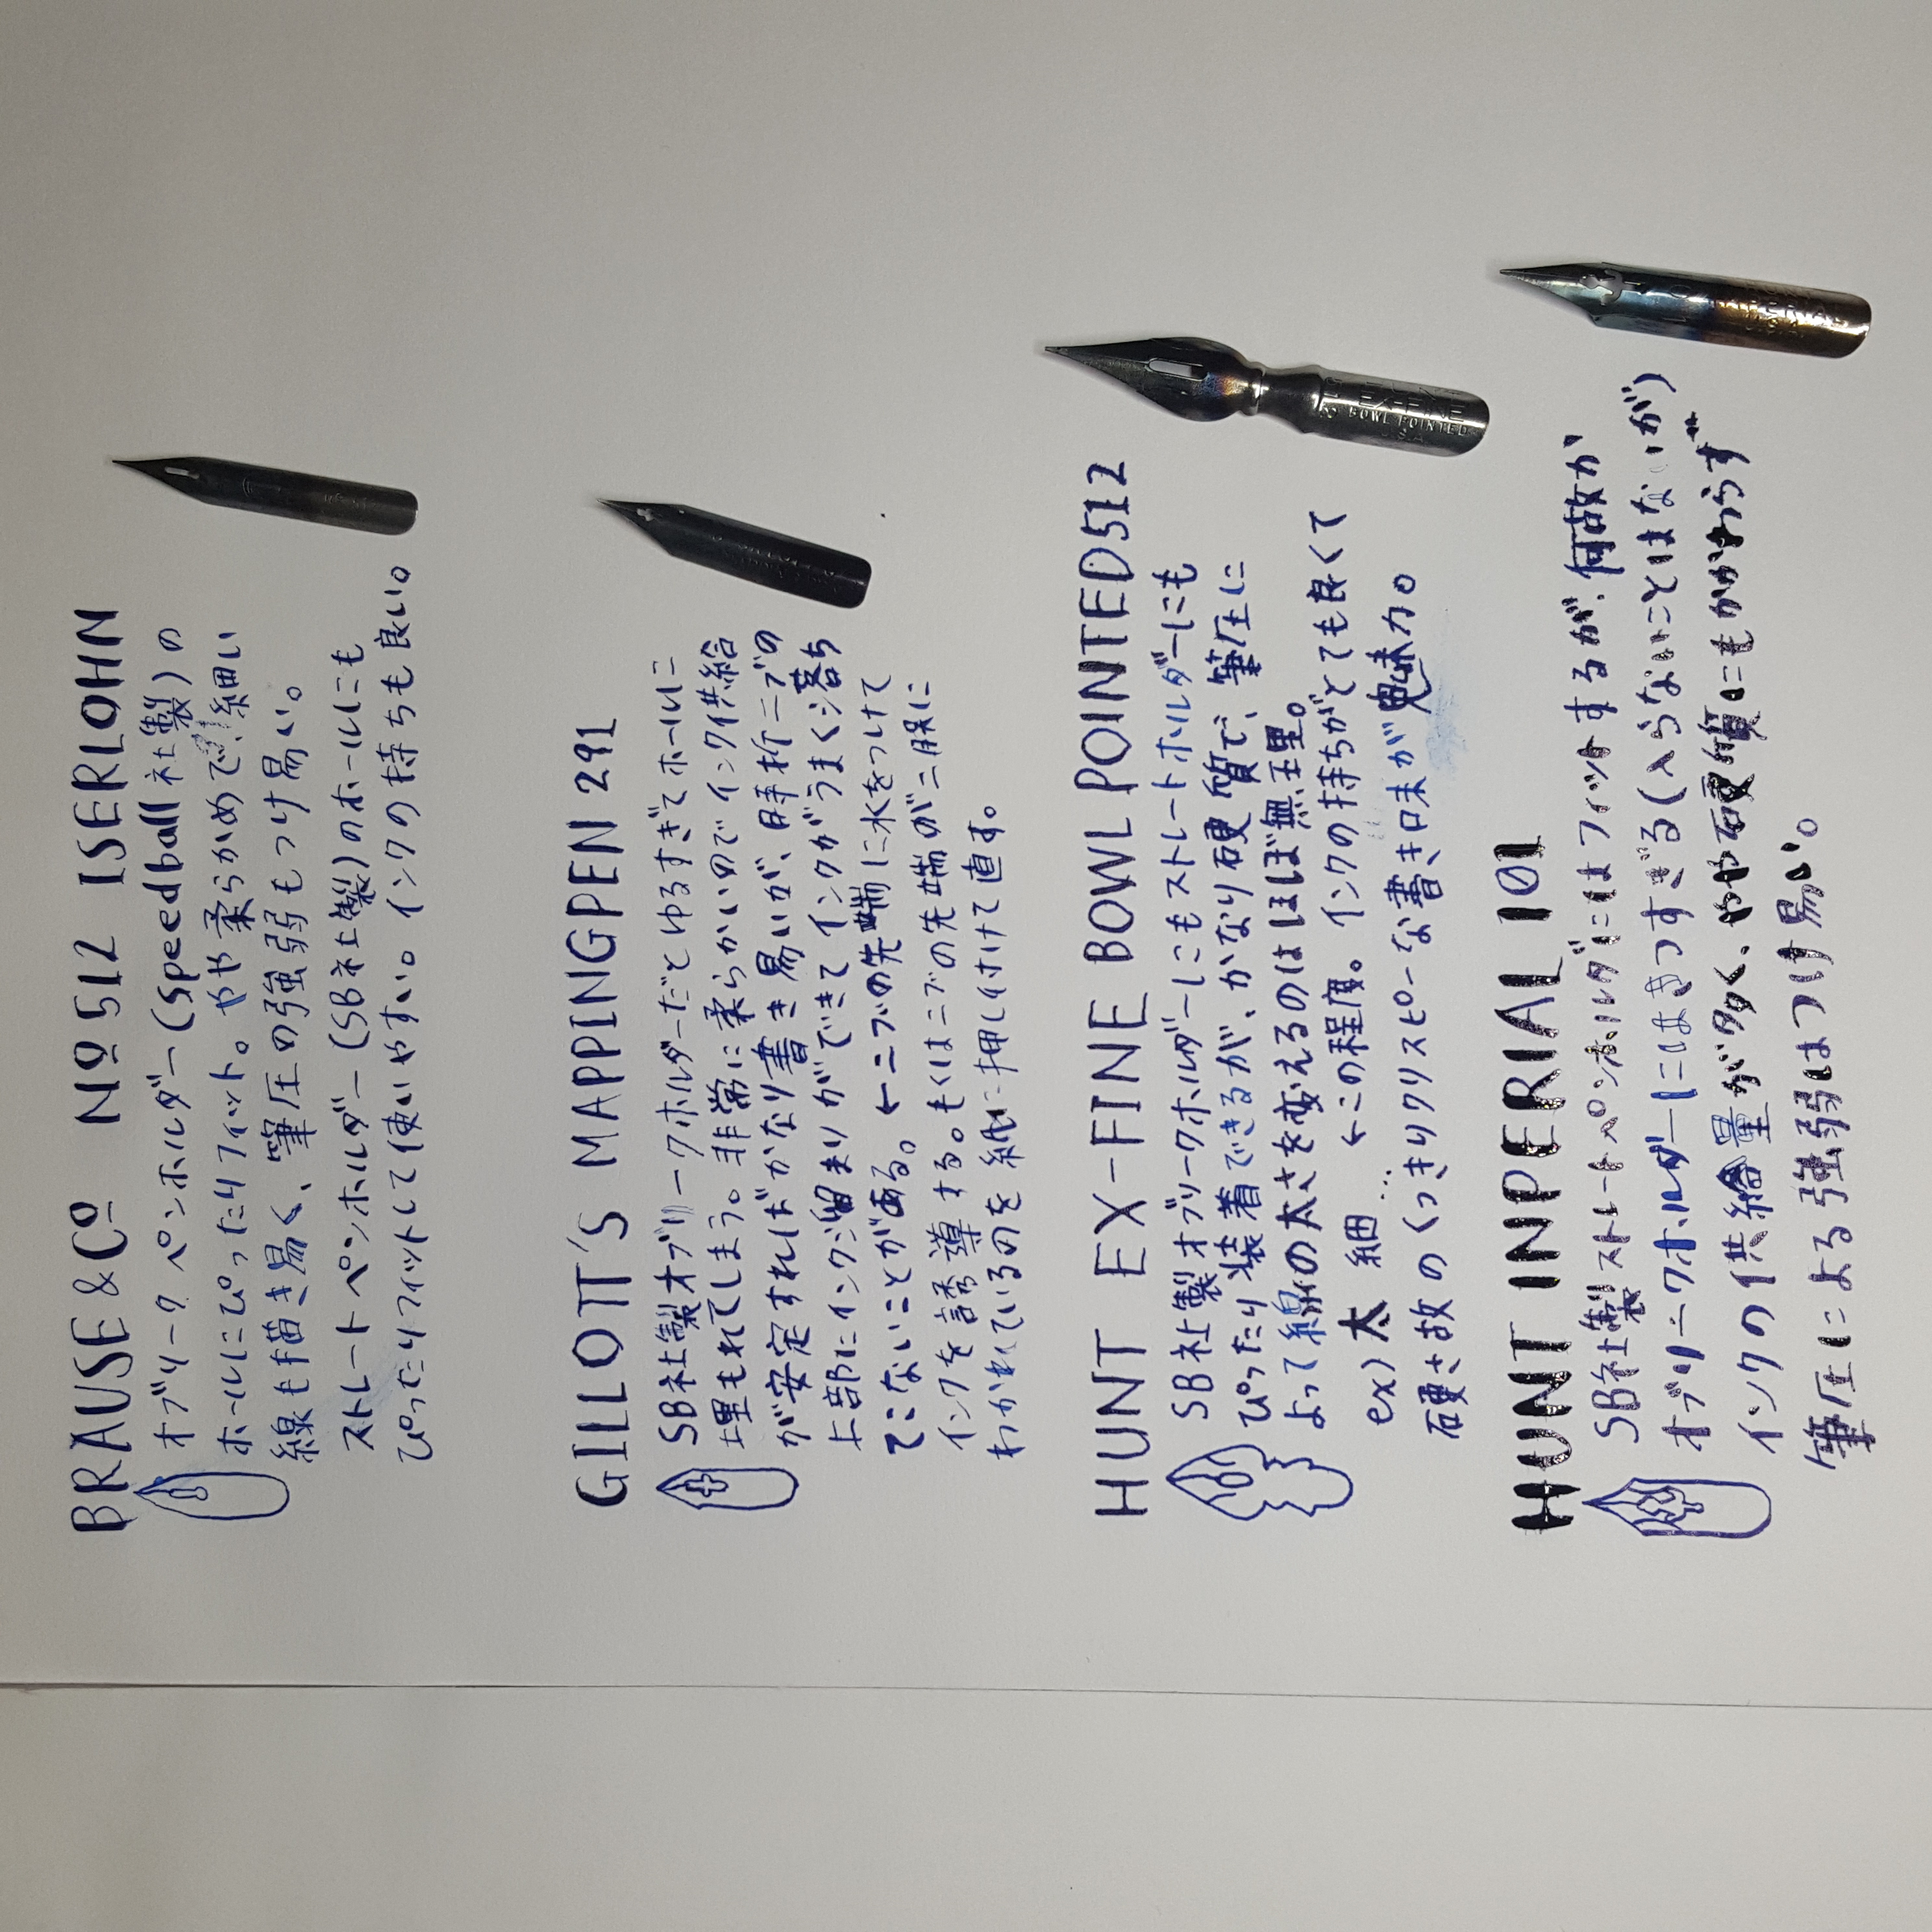 BRAUSE & Co No 512 ISERLOHN
オブリーク ペンホルダー(Speedball社製)の
ホールにぴったりフィット。やや柔らかめで、細い
線も描き易く、筆圧の強弱もつけ易い。
ストレートペンホルダー(SB社製)のホールにも
ぴったりフィットして使いやすい。インクの持ちも良い。
GILLOTT'S MAPPINGPEN 291
SB社製オブリークホルダーだとゆるすぎてホールに
埋もれてしまう。非常に柔らかいのでインク供給
が安定すればかなり書き易いが、時折ニブの
上部にインク溜まりができてインクがうまく落ち
てこないことがある。←ニブの先端に水をつけて
インクを誘導する。もくはニブの先端が二股に
わかれているのを紙に押し付けて直す。
HUNT EX-FINE BOWL POINTED 512
SB社製オブリークホルダーにもストレートホルダーにも
ぴったり装着できるが、かなり硬質で、筆圧に
よって線の太さを変えるのはほぼ無理。
ex) 太 細… ←この程度。インクの持ちがとても良くて
硬さ故のくっきりクリスピーな書き味が魅力。
HUNT INPERIAL 101
SB社製ストレートペンホルダにはフィットするが、何故か
オブリークホルダーにはきつすぎる(入らないことはないが)
インクの供給量が多く、やや硬質にもかかわらず
筆圧による強弱はつけ易い。
EX-FINE
BOWL POINTED
USA
IMPERIAL
USA